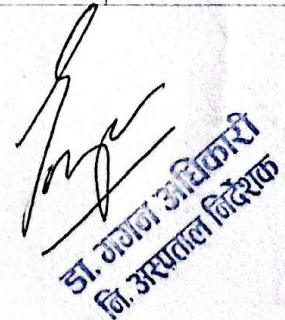 डा. गगन अधिकारी
नि. अस्पताल निर्देशक